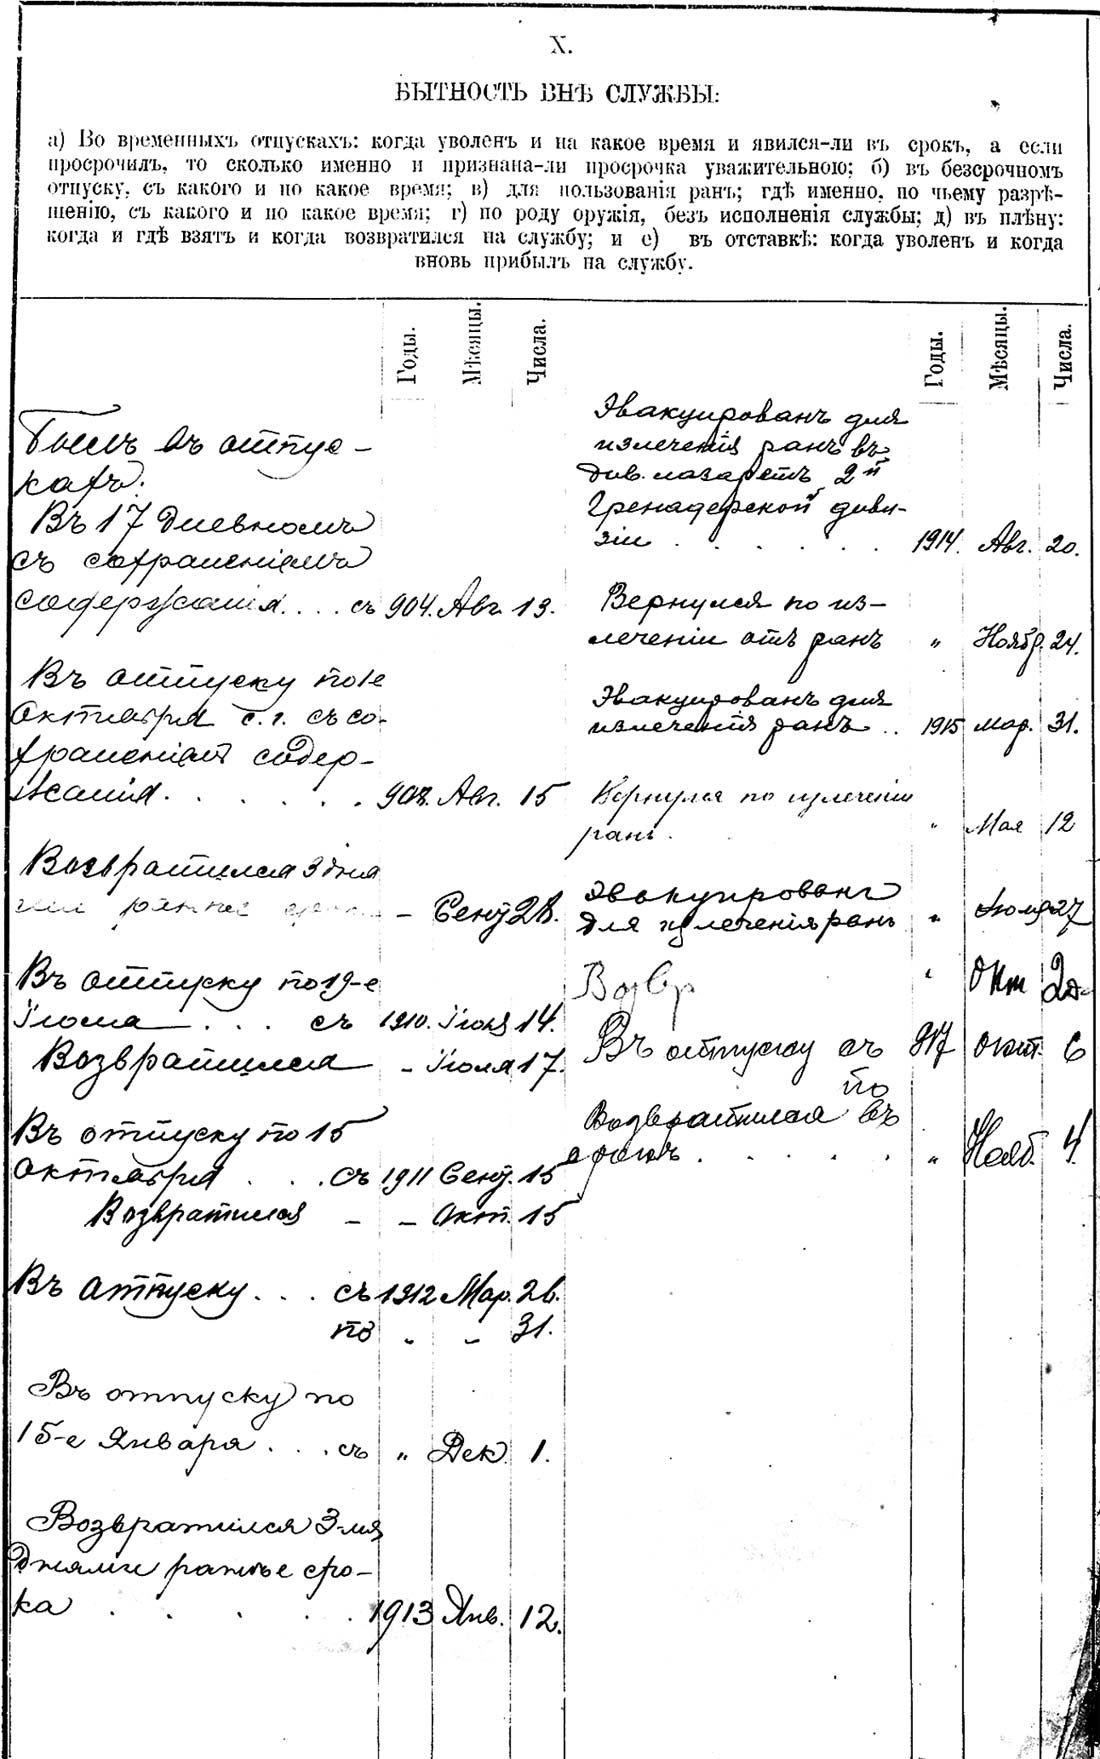 X.
БЫТНОСТЬ ВНѢ СЛУЖБЫ:
а) Во временныхъ отпускахъ: когда уволенъ и на какое время и явился-ли въ срокъ, а если
просрочилъ, то сколько именно и признана-ли просрочка уважительною; б) въ безсрочномъ
отпуску, съ какого и по какое время; в) для пользованія ранъ; гдѣ именно, по чьему разрѣ-
шенію, съ какого и по какое время; г) по роду оружія, безъ исполненія службы; д) въ плѣну:
когда и гдѣ взятъ и когда возвратился на службу; и е) въ отставкѣ: когда уволенъ и когда
вновь прибылъ на службу.
Годы. Мѣсяцы. Числа.
Былъ въ отпус-
кахъ:
Въ 17 дневномъ
съ сохраненіемъ
содержанія.... съ 904. Авг. 13.
Въ отпуску по 1е
Октября с. г. съ со-
храненіемъ содер-
жанія. . . . . . . 908. Авг. 15
Возвратился 3 дня
ранѣе – Сент. 28.
Въ отпуску по 19-е
Іюля . . . съ 1910. Іюня 14.
Возвратился – Іюля 17.
Въ отпуску по 15
Октября . . . съ 1911 Сент. 15
Возвратился – – Окт. 15
Въ отпуску . . . съ 1912 Мар. 26.
по „ „ 31.
Въ отпуску по
15-е Января . . . съ „ Дек. 1.
Возвратился 3-мя
днями ранѣе сро-
ка . . . . . 1913 Янв. 12.
Годы. Мѣсяцы. Числа.
Эвакуированъ для
излеченія ранъ въ
див. лазаретъ 2й
Гренадерской диви-
зіи . . . . . . 1914. Авг. 20.
Вернулся по из-
леченіи отъ ранъ „ Ноябр. 24.
Эвакуированъ для
излеченія ранъ .. 1915 Мар. 31.
Вернулся по излеченіи
ранъ. „ Мая 12
Эвакуированъ
для излеченія ранъ „ Іюля 27
Возвр „ Окт 20
Въ отпуску съ 917 Окт. 6
по
Возвратился въ
срокъ . . . . . „ Нояб. 4.